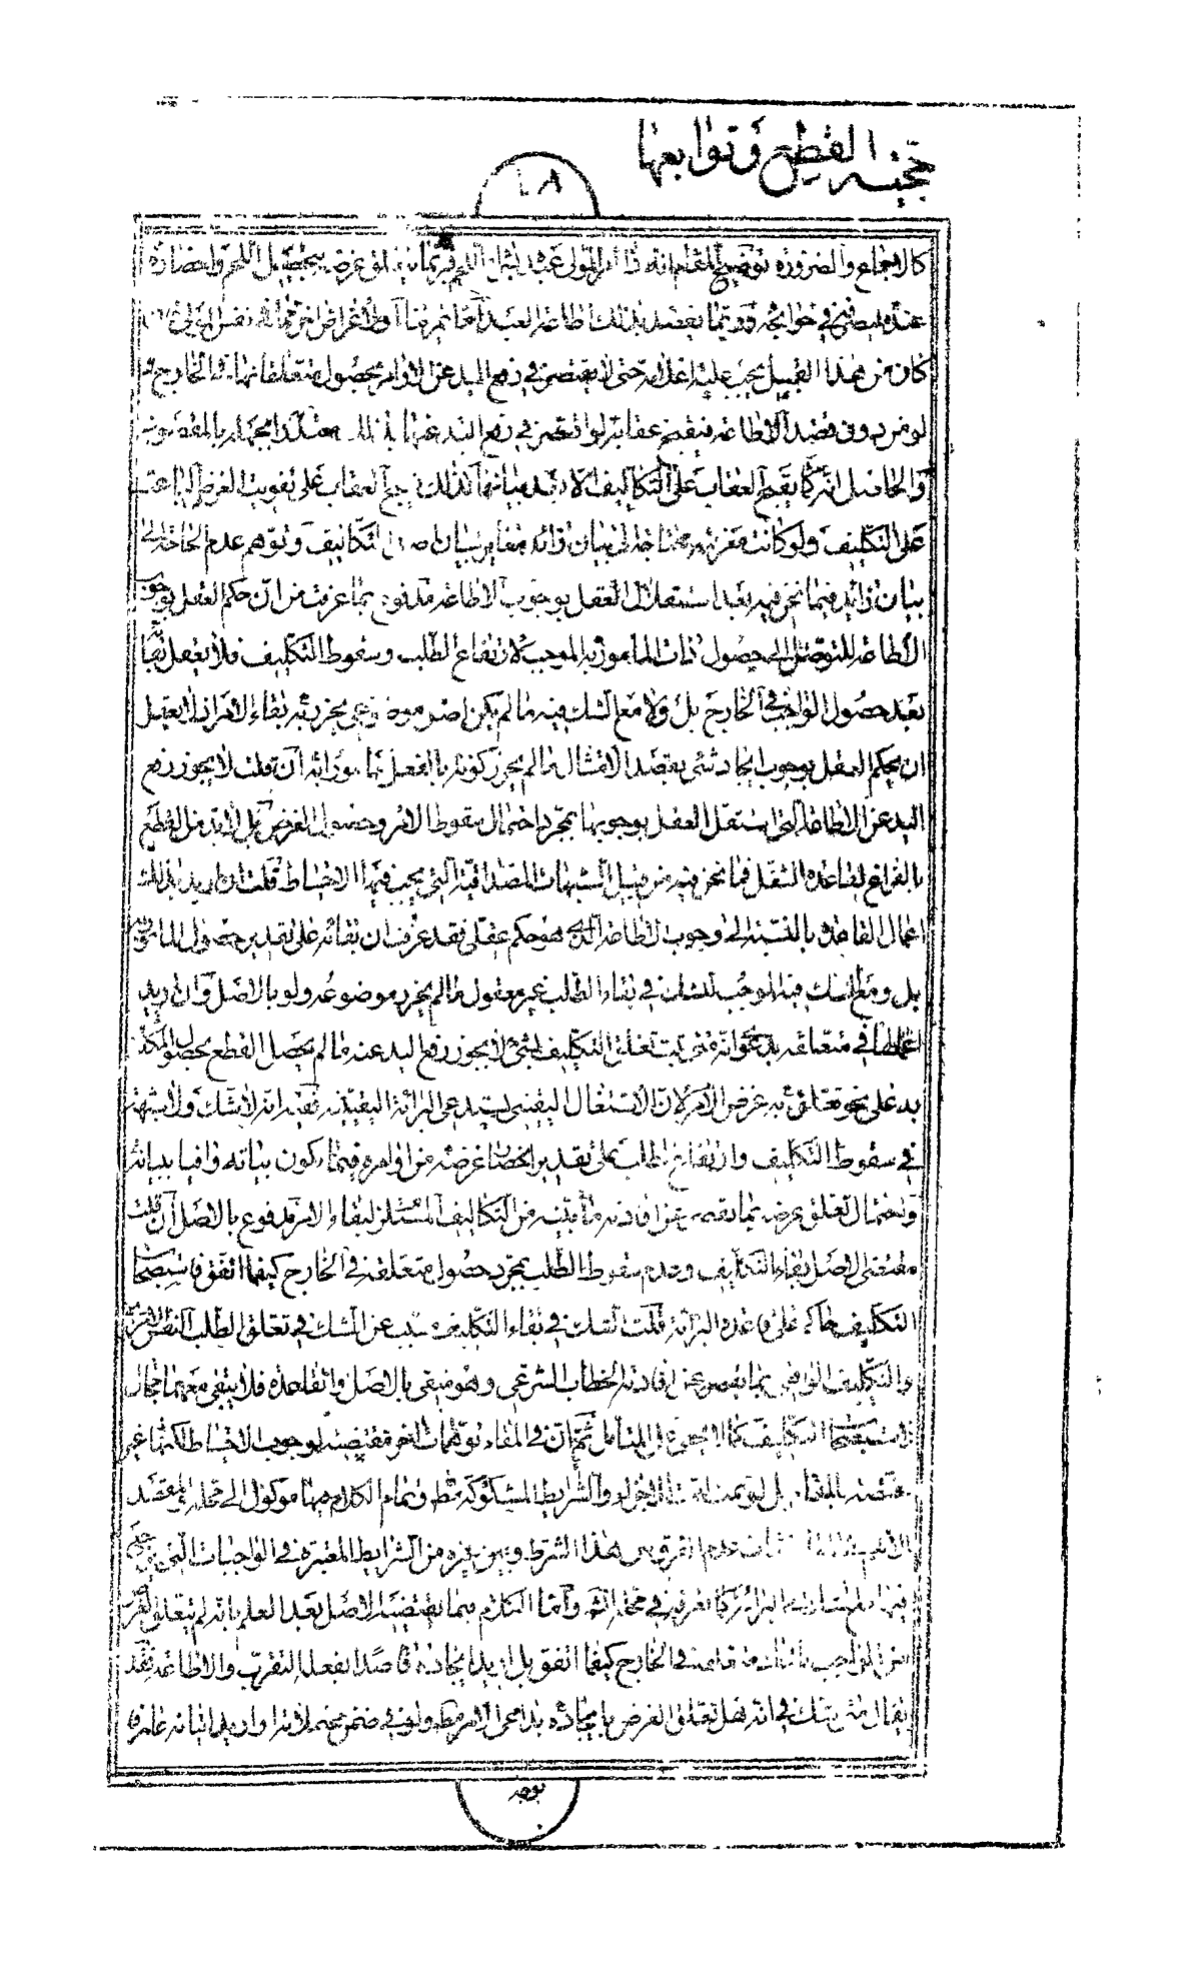 حجية القطع و توابعها
١٨
كالاجماع والضرورة توضيح المقام انه اذا امر المولى عبده بشراء اللحم فربما يتعلق غرضه بتحصيل اللحم واحضاره
عنده ليصرفه في حوائجه وربما يقصد بذلك اطاعة العبد اما تمرينا او لاغراض اخر فما في نفس المولى
كان من هذا القبيل يجب عليه اعلامه حتى لا يقتصر في رفع اليد عن الاوامر بحصول متعلقاتها في الخارج
لو من دون قصد الاطاعة فيقبح عقابه لو اقتصر في رفع اليد عنها بذلك معتذرا بجهله بالمقصود
والحاصل انه كما يقبح العقاب على التكاليف الا بعد بيانها كذلك يقبح العقاب على تفويت الغرض الباعث
على التكليف ولو كانت معرفته محتاجة الى بيان زائد مغاير لبيان اصل التكاليف وتوهم عدم الحاجة الى
بيان زائد فيما نحن فيه بعد استقلال العقل بوجوب الاطاعة مدفوع بما عرفت من ان حكم العقل بوجوب
الاطاعة للتوصل الى حصول ذات المأمور به الموجب لارتفاع الطلب وسقوط التكليف فلا يعقل بقائها
بعد حصول الواجب في الخارج بل ولا مع الشك فيه ما لم يكن اصل موضوعي يحرز به بقاء الامر اذ لا يعقل
ان يحكم العقل بوجوب ايجاد شئ بقصد الامتثال ما لم يحرز كونه بالفعل مأمورا به ان قلت لا يجوز رفع
اليد عن الاطاعة التي استقل العقل بوجوبها بمجرد احتمال سقوط الامر وحصول الغرض بل لا بد من القطع
بالفراغ لقاعدة الشغل فما نحن فيه من قبيل الشبهات المصداقية التي يجب فيها الاحتياط قلت ان اريد بذلك
اعمال القاعدة بالنسبة الى وجوب الاطاعة الذي هو حكم عقلي فقد عرفت ان بقائه على تقدير حصول المأمور به
بل ومع الشك فيه الموجب للشك في بقاء الطلب غير معقول ما لم يحرز موضوعه ولو بالاصل وان اريد
اعمالها في متعلقه بدعوى انه متى ثبت تعلق التكليف بشئ لا يجوز رفع اليد عنه ما لم يحصل القطع بحصول المكلف
به على نحو تعلق به غرض الامر لان الاشتغال اليقيني يستدعي البرائة اليقينية ففيه انه لا شك ولا شبهة
في سقوط التكليف وارتفاع الطلب على تقدير انحصار غرضه من اوامره فيما يكون بيانه وافيا ببيانه
واحتمال تعلق غرضه بما يقصر عن افادته ما بينه من التكاليف المستلزم لبقاء الامر مدفوع بالاصل ان قلت
مقتضى الاصل بقاء التكليف وعدم سقوط الطلب بمجرد حصول متعلقه في الخارج كيفما اتفق فاستصحاب
التكليف حاكم على قاعدة البرائة قلت الشك في بقاء التكليف مسبب عن الشك في تعلق الطلب النفس الامري
والتكليف الواقعي بما يقصر عن افادته الخطاب الشرعي وهو منفي بالاصل والقاعدة فلا يبقى معهما مجال
لاستصحاب التكليف كما لا يخفى على المتامل ثم ان في المقام توهمات اخر مقتضية لوجوب الاحتياط لكنها غير
مختصة بالمقام بل لو تمت لعمت الاجزاء والشرايط المشكوكة مط وتمام الكلام فيها موكول الى محله المقصد
عدم الفرق بين هذا الشرط وبين غيره من الشرايط المعتبرة في الواجبات التي
فيها البرائة كما تعرفه في محله انش واما الكلام فيما يقتضيه الاصل بعد العلم بانه لم يتعلق
من الواجب في الخارج كيفما اتفق بل اريد ايجاده قاصدا بفعله التقرب والاطاعة فقد
يقال متى شك في انه هل تعلق الغرض بايجاده بداعي الامر مط ولو في ضمن محتملاته او اريد اتيانه عارفا
بوجهه